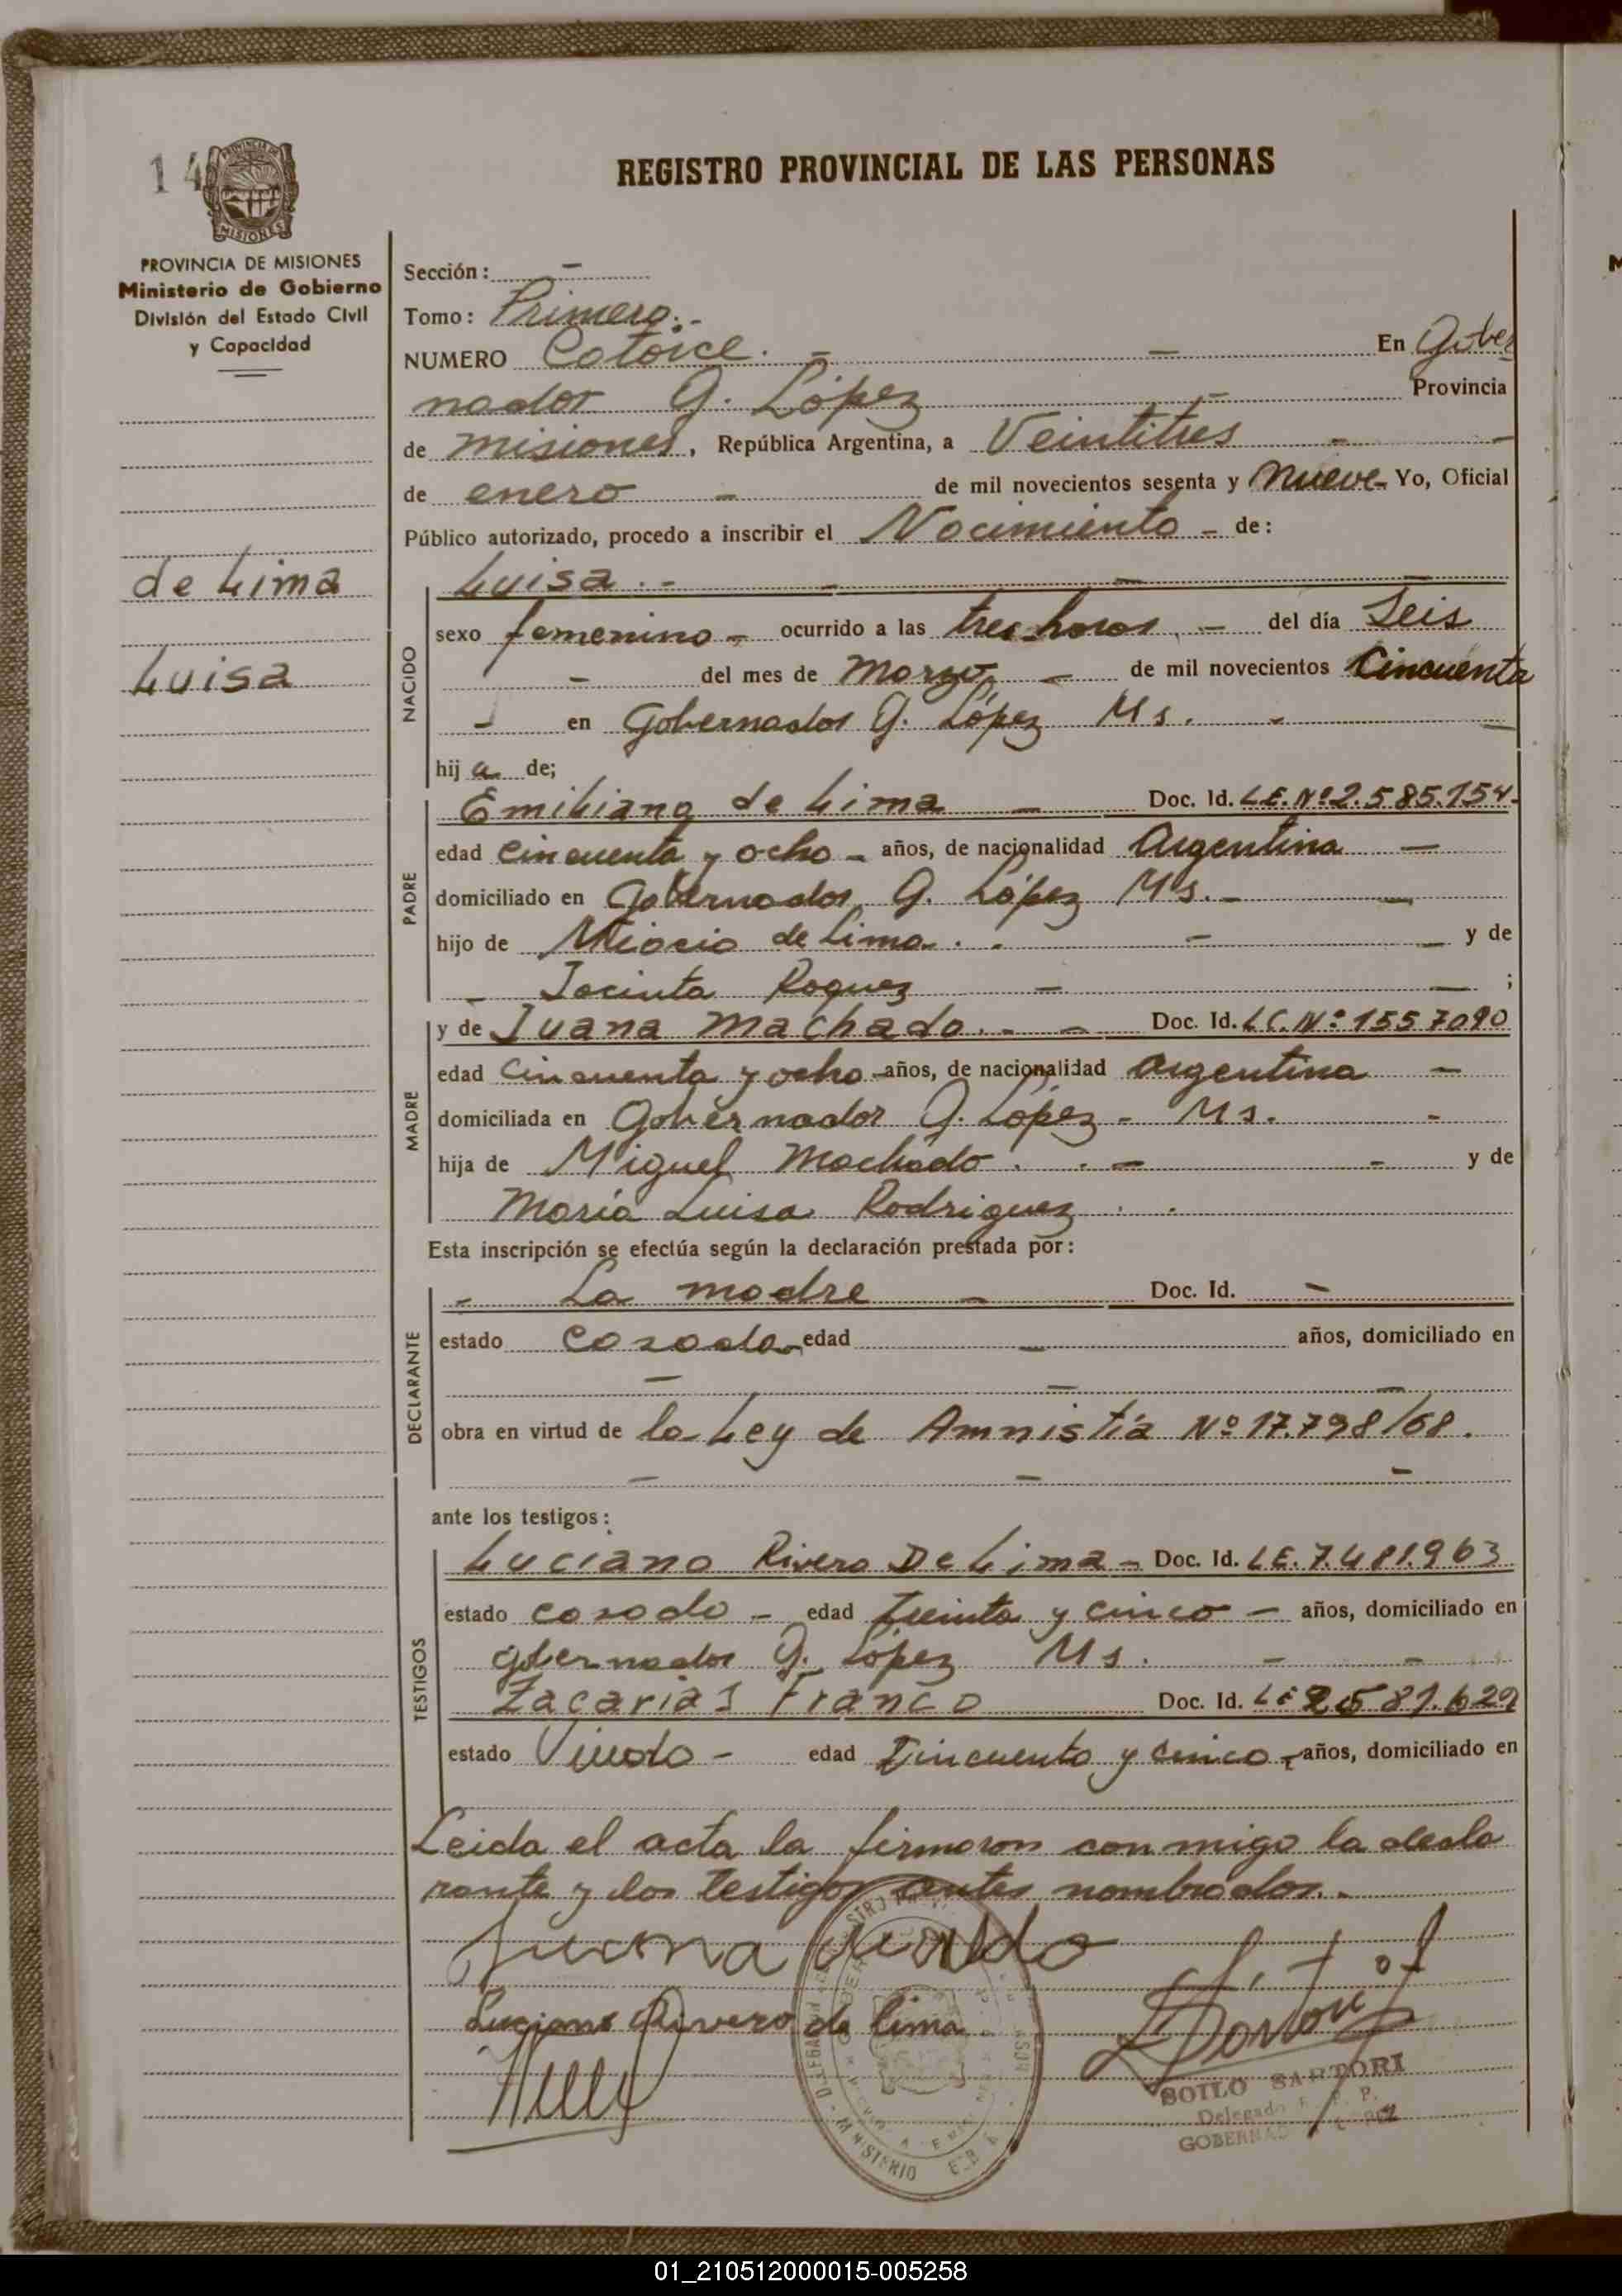 14
REGISTRO PROVINCIAL DE LAS PERSONAS
PROVINCIA DE MISIONES
Ministerio de Gobierno
División del Estado Civil
y Capacidad
de Lima
Luisa
Sección: -
Tomo: Primero.-
NUMERO Catorce. - - En Gober
nador G. López - Provincia
de misiones, República Argentina, a Veintitres - -
de enero - de mil novecientos sesenta y nueve - Yo, Oficial
Público autorizado, procedo a inscribir el Nacimiento - de:
NACIDO
Luisa.- - - -
sexo femenino - ocurrido a las tres horas, - del día Seis
- del mes de Marzo, - de mil novecientos Cincuenta
- en Gobernador G. López Ms. - -
hij a de;
PADRE
Emiliano de Lima - Doc. Id. L.E. Nº 2.585.154-
edad cincuenta y ocho - años, de nacionalidad Argentina -
domiciliado en Gobernador G. López Ms. - -
hijo de de Lima. - - - y de
- Jacinta Roquez - - ;
MADRE
y de Juana Machado. - - Doc. Id. L.C. Nº 1557090
edad Cincuenta y ocho - años, de nacionalidad argentina -
domiciliada en Gobernador G. López - Ms. -
hija de Miguel Machado. . - - y de
María Luisa Rodriguez . .
Esta inscripción se efectúa según la declaración prestada por:
DECLARANTE
- La madre - Doc. Id. -
estado casada - edad - años, domiciliado en
- - -
obra en virtud de la Ley de Amnistía Nº 17.798/68.
- - -
ante los testigos:
TESTIGOS
Luciano Rivero De Lima - Doc. Id. L.E. 7.481.963
estado casado - edad Treinta y cinco - años, domiciliado en
gobernador G. López Ms. - -
Zacarias Franco Doc. Id. LE 2.581.629
estado Viudo - edad Cincuenta y cinco - años, domiciliado en
Leida el acta la firmaron conmigo la decla
rante y los testigos antes nombrados.-
Juana
Luciano Rivero de Lima
SOILO SARTORI
Delegado R. P. P.
01_210512000015-005258